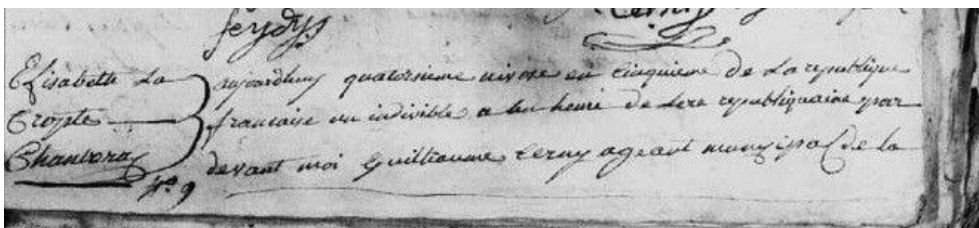 feydy
Cerny
Elisabette La
Cropte
Chantera
n.° 9
aujourdhuy quatorsieme nivose en cinquieme de La republique
francaise un indivible a lun heuri de Lere republiquaine par
devant moi Guilliaume Cerny ageant municipal de la